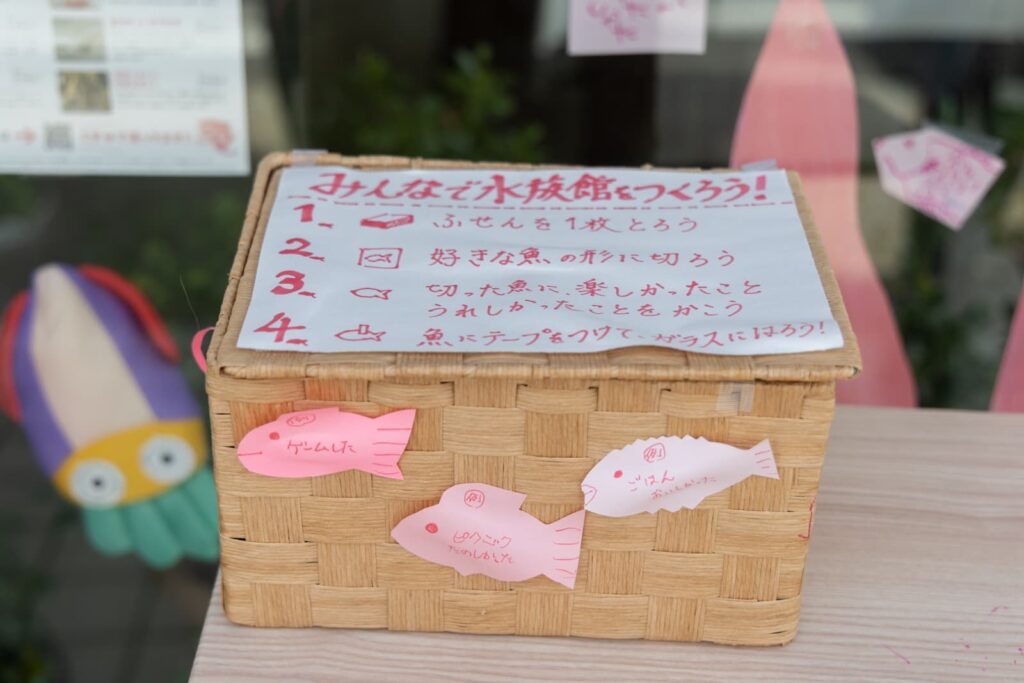 みんなで水族館をつくろう!
1. ふせんを1枚とろう
2. 好きな魚の形に切ろう
3. 切った魚に、楽しかったこと
うれしかったことをかこう
4. 魚にテープをつけて、ガラスにはろう!
例
ゲームした
例
ピクニック
たのしかった
例
ごはん
おいしかった